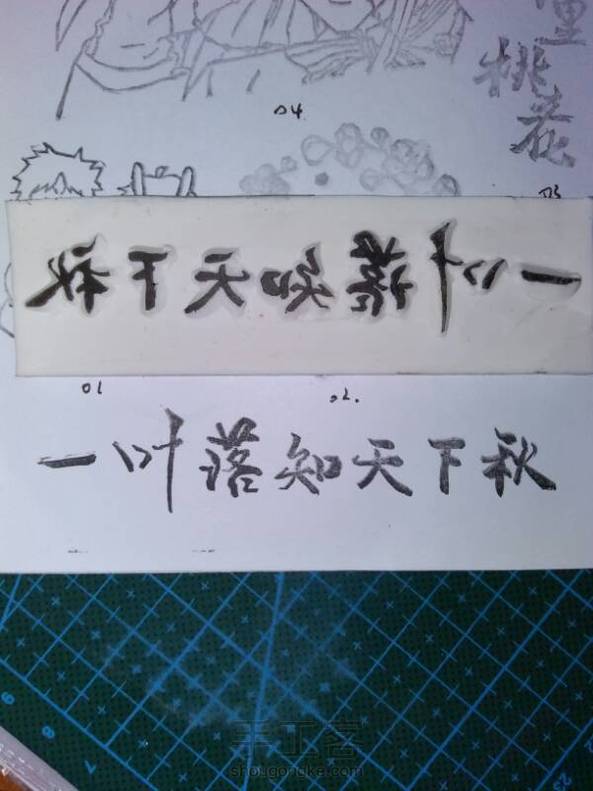 里
桃
花
04
03
一叶落知天下秋
01
02.
一叶落知天下秋
9
8
7
手工客
shougongke.com